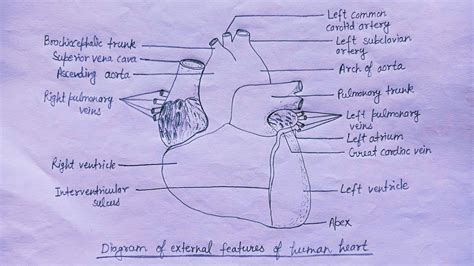 Left common
carotid artery
Brachiocephalic trunk
Superior vena cava
Ascending aorta
Right pulmonary
veins
Left subclavian
artery
Arch of aorta
Pulmonary trunk
Left pulmonary
veins
Left atrium
Great cardiac vein
Right ventricle
Interventricular
sulcus
Left ventricle
Apex
Diagram of external features of human heart